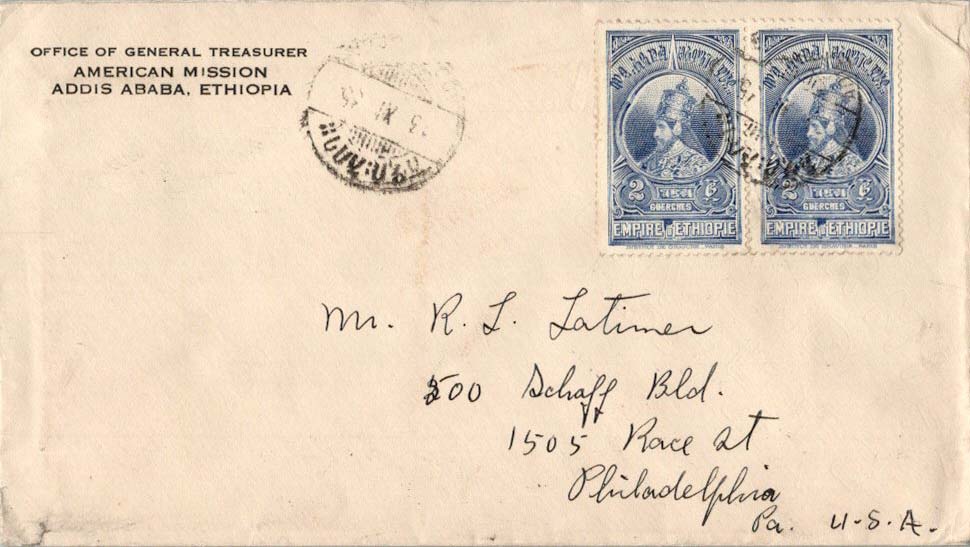 OFFICE OF GENERAL TREASURER
AMERICAN MISSION
ADDIS ABABA, ETHIOPIA
13 XI 35
2 2
GUERCHES GUERCHES
EMPIRE D'ETHIOPIE EMPIRE D'ETHIOPIE
Mr. R. L. Latimer
500 Schaff Bld.
1505 Race St
Philadelphia
Pa. U.S.A.